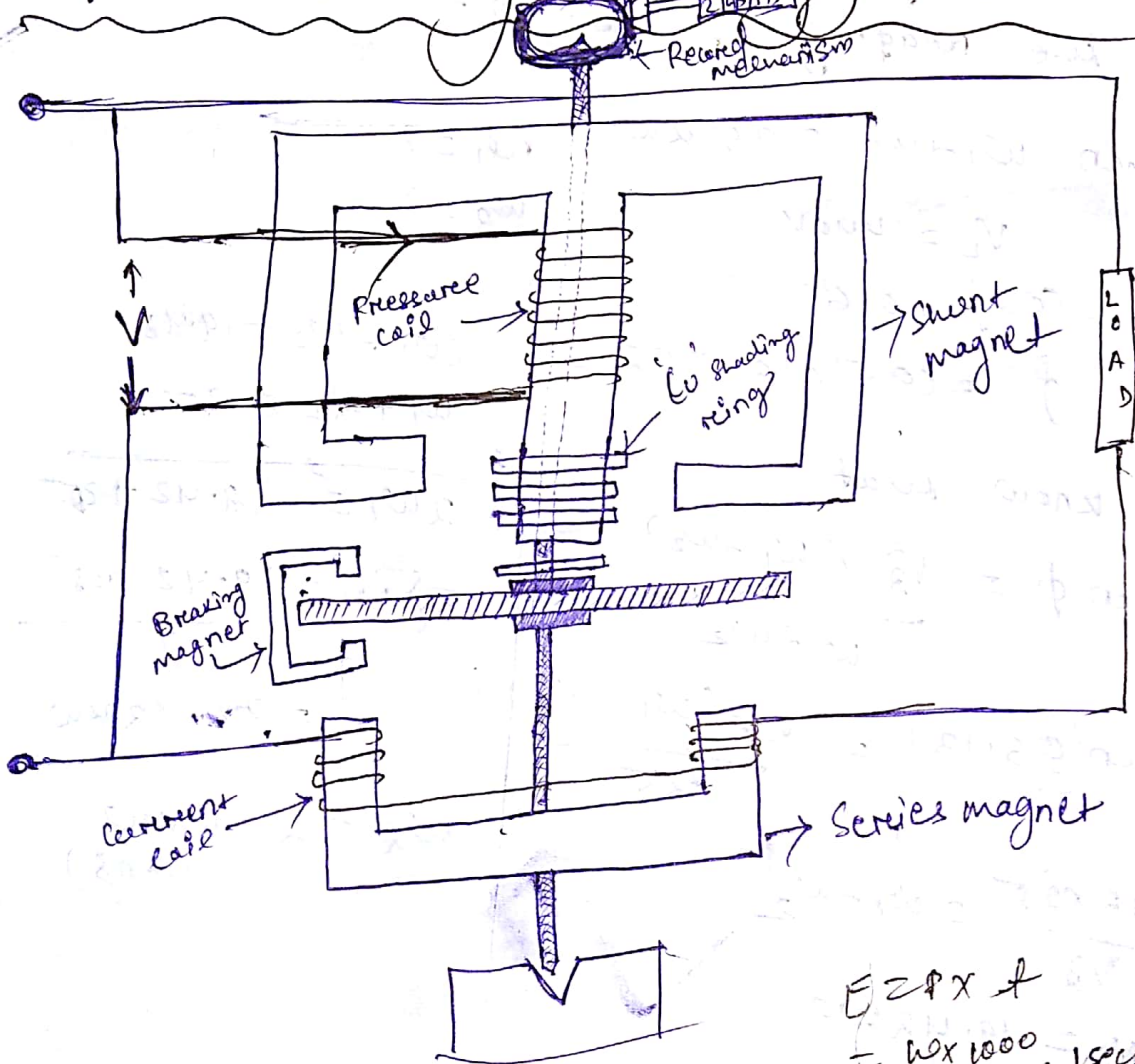 Record
mechanism
V
Pressure
coil
'Cu' shading
ring
Shunt
magnet
LOAD
Breaking
magnet
Current
coil
Series magnet
E = P x t